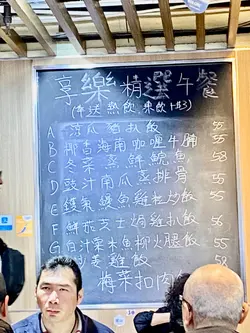 享樂精選午餐
(午送熱飲,凍飲+$3)
A 涼瓜 扒飯 55
B 椰香海南咖喱牛腩 55
C 冬菜蒸鮮鯇魚 58
D 豉汁南瓜蒸排骨 55
E 鑊氣 雞 炒飯
F 鮮茄芝士焗雞扒飯 56
G 白汁粟米魚柳火腿飯 55
沙姜雞飯 58
梅菜扣肉